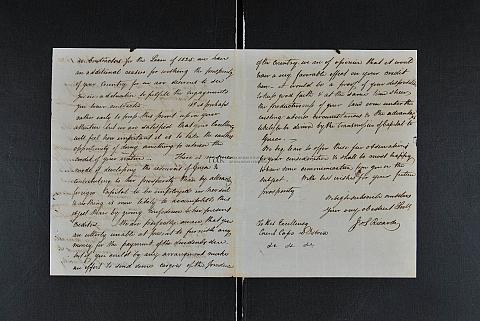 as Contractors for the Loan of 1825 we have
an additional reason for wishing the prosperity
of your Country for we are desirous to see
you in a situation to fulfill the engagements
you have contracted. It is perhaps
rather early to press this point upon your
attention but we are satisfied that your Excellency
will feel how important it is to take the earliest
opportunity of doing something to restore the
credit of your nation. There is no surer
mode of developing the resources of Greece &
contributing to her prosperity than by allowing
foreign Capital to be employed in her soil
& nothing is more likely to accomplish this
object than by giving confidence to her present
creditors. We are perfectly aware that you
are utterly unable at present to furnish any
money for the payment of the dividends due
but if you could by any arrangement make
an effort to send some cargoes of the produce
of the Country we are of opinion that it would
have a very favorable effect on your credit
here. it would be a proof of your disposition
to keep good faith & at the same time shew
the productiveness of your land even under the
existing adverse circumstances & the advantage
likely to be derived by the transmission of Capital to
Greece.
We beg leave to offer these few observations
for your consideration & shall be most happy
to have some communication from you on the
subject. With best wishes for your future
prosperity
We are
Your very obedient Servts
J & S Ricardo
To His Excellency
Count Capo D'Istria
&c &c &c